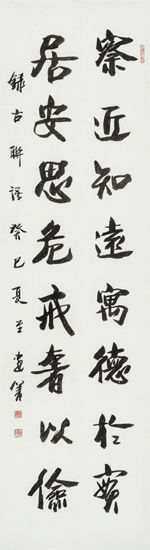 察近知遠寓德於實
居安思危戒奢以儉
錄古聯語癸巳夏至